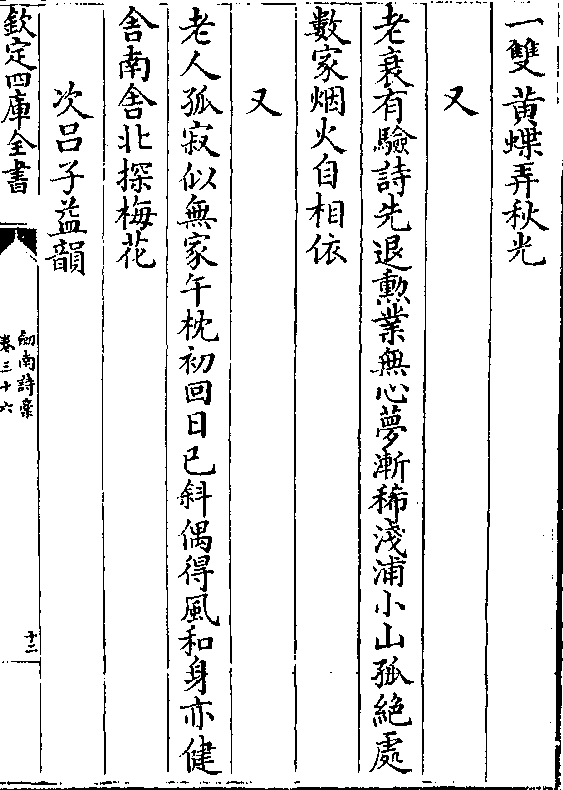 一雙黄蝶弄秋光
又
老衰有驗詩先退勲業無心夢漸稀淺浦小山孤絶處
數家烟火自相依
又
老人孤寂似無家午枕初回日已斜偶得風和身亦健
舎南舎北探梅花
次吕子益韻
欽定四庫全書
劒南詩稾
卷三十六
十二